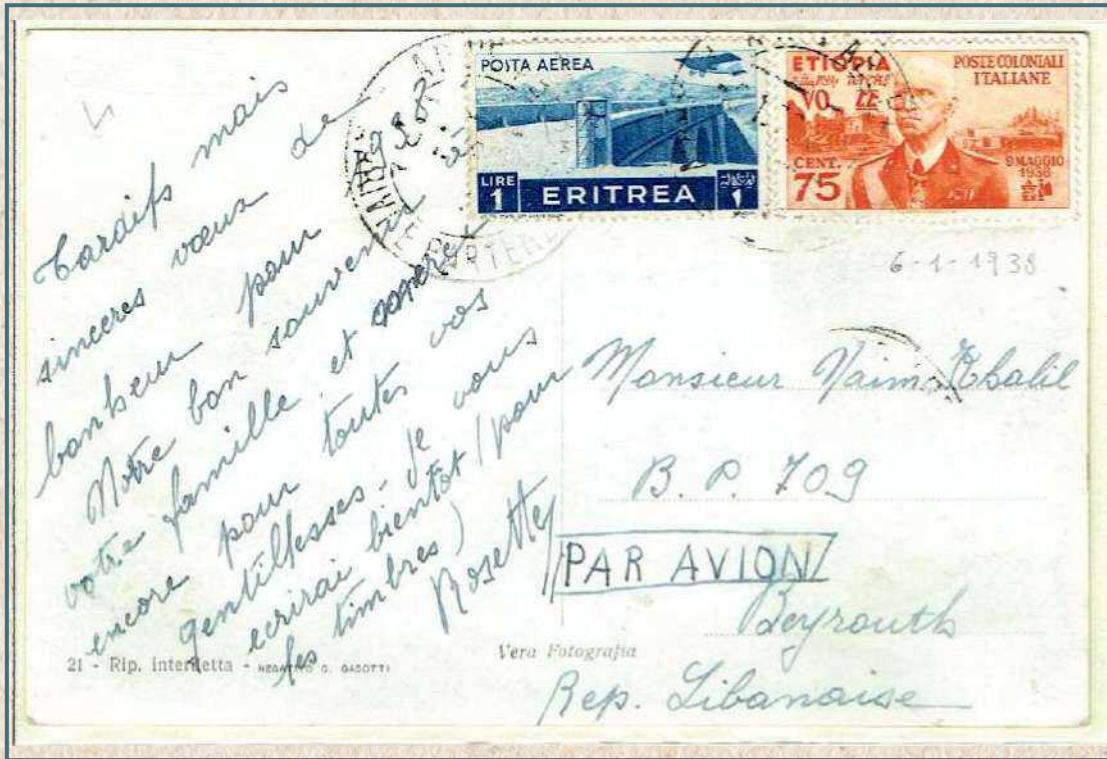 POSTA AEREA
LIRE
1
ERITREA
ETIOPIA
POSTE COLONIALI
ITALIANE
CENT.
75
9 MAGGIO
1936
6-1-1938
Tardifs mais
sinceres vœux de
bonheur pour
Notre bon souvenir
votre famille, et
encore pour toutes vos
gentillesses. Je vous
ecrirai bientot (pour
les timbres)
Rosette
Monsieur Naim Khalil
B. P. 709
PAR AVION
Beyrouth
Rep. Libanaise
21 - Rip. interdetta - NEGATIVO G. GADOTTI
Vera Fotografia